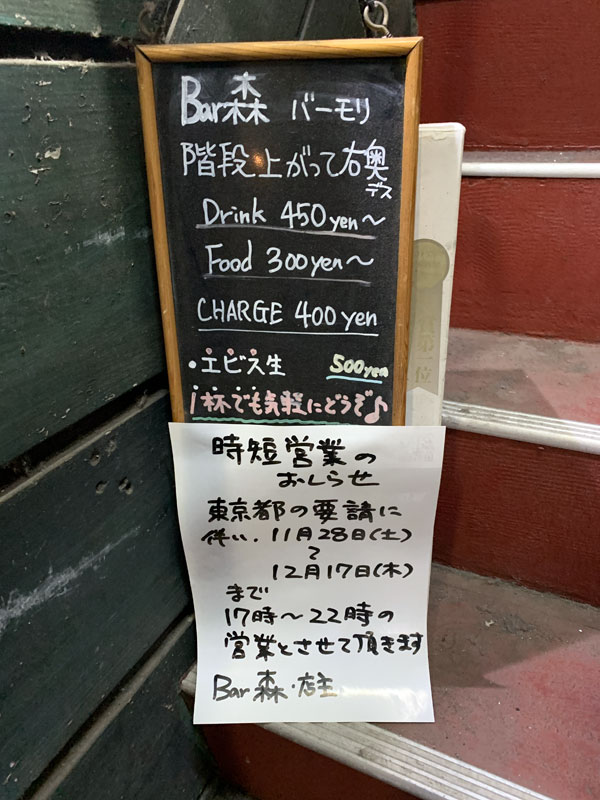 Bar森 バーモリ
階段上がって右奥デス
Drink 450yen〜
Food 300yen〜
CHARGE 400yen
・エビス生 500yen
1杯でも気軽にどうぞ♪
時短営業の
おしらせ
東京都の要請に
伴い、11月28日(土)
〜
12月17日(木)
まで
17時〜22時の
営業とさせて頂きます
Bar森・店主